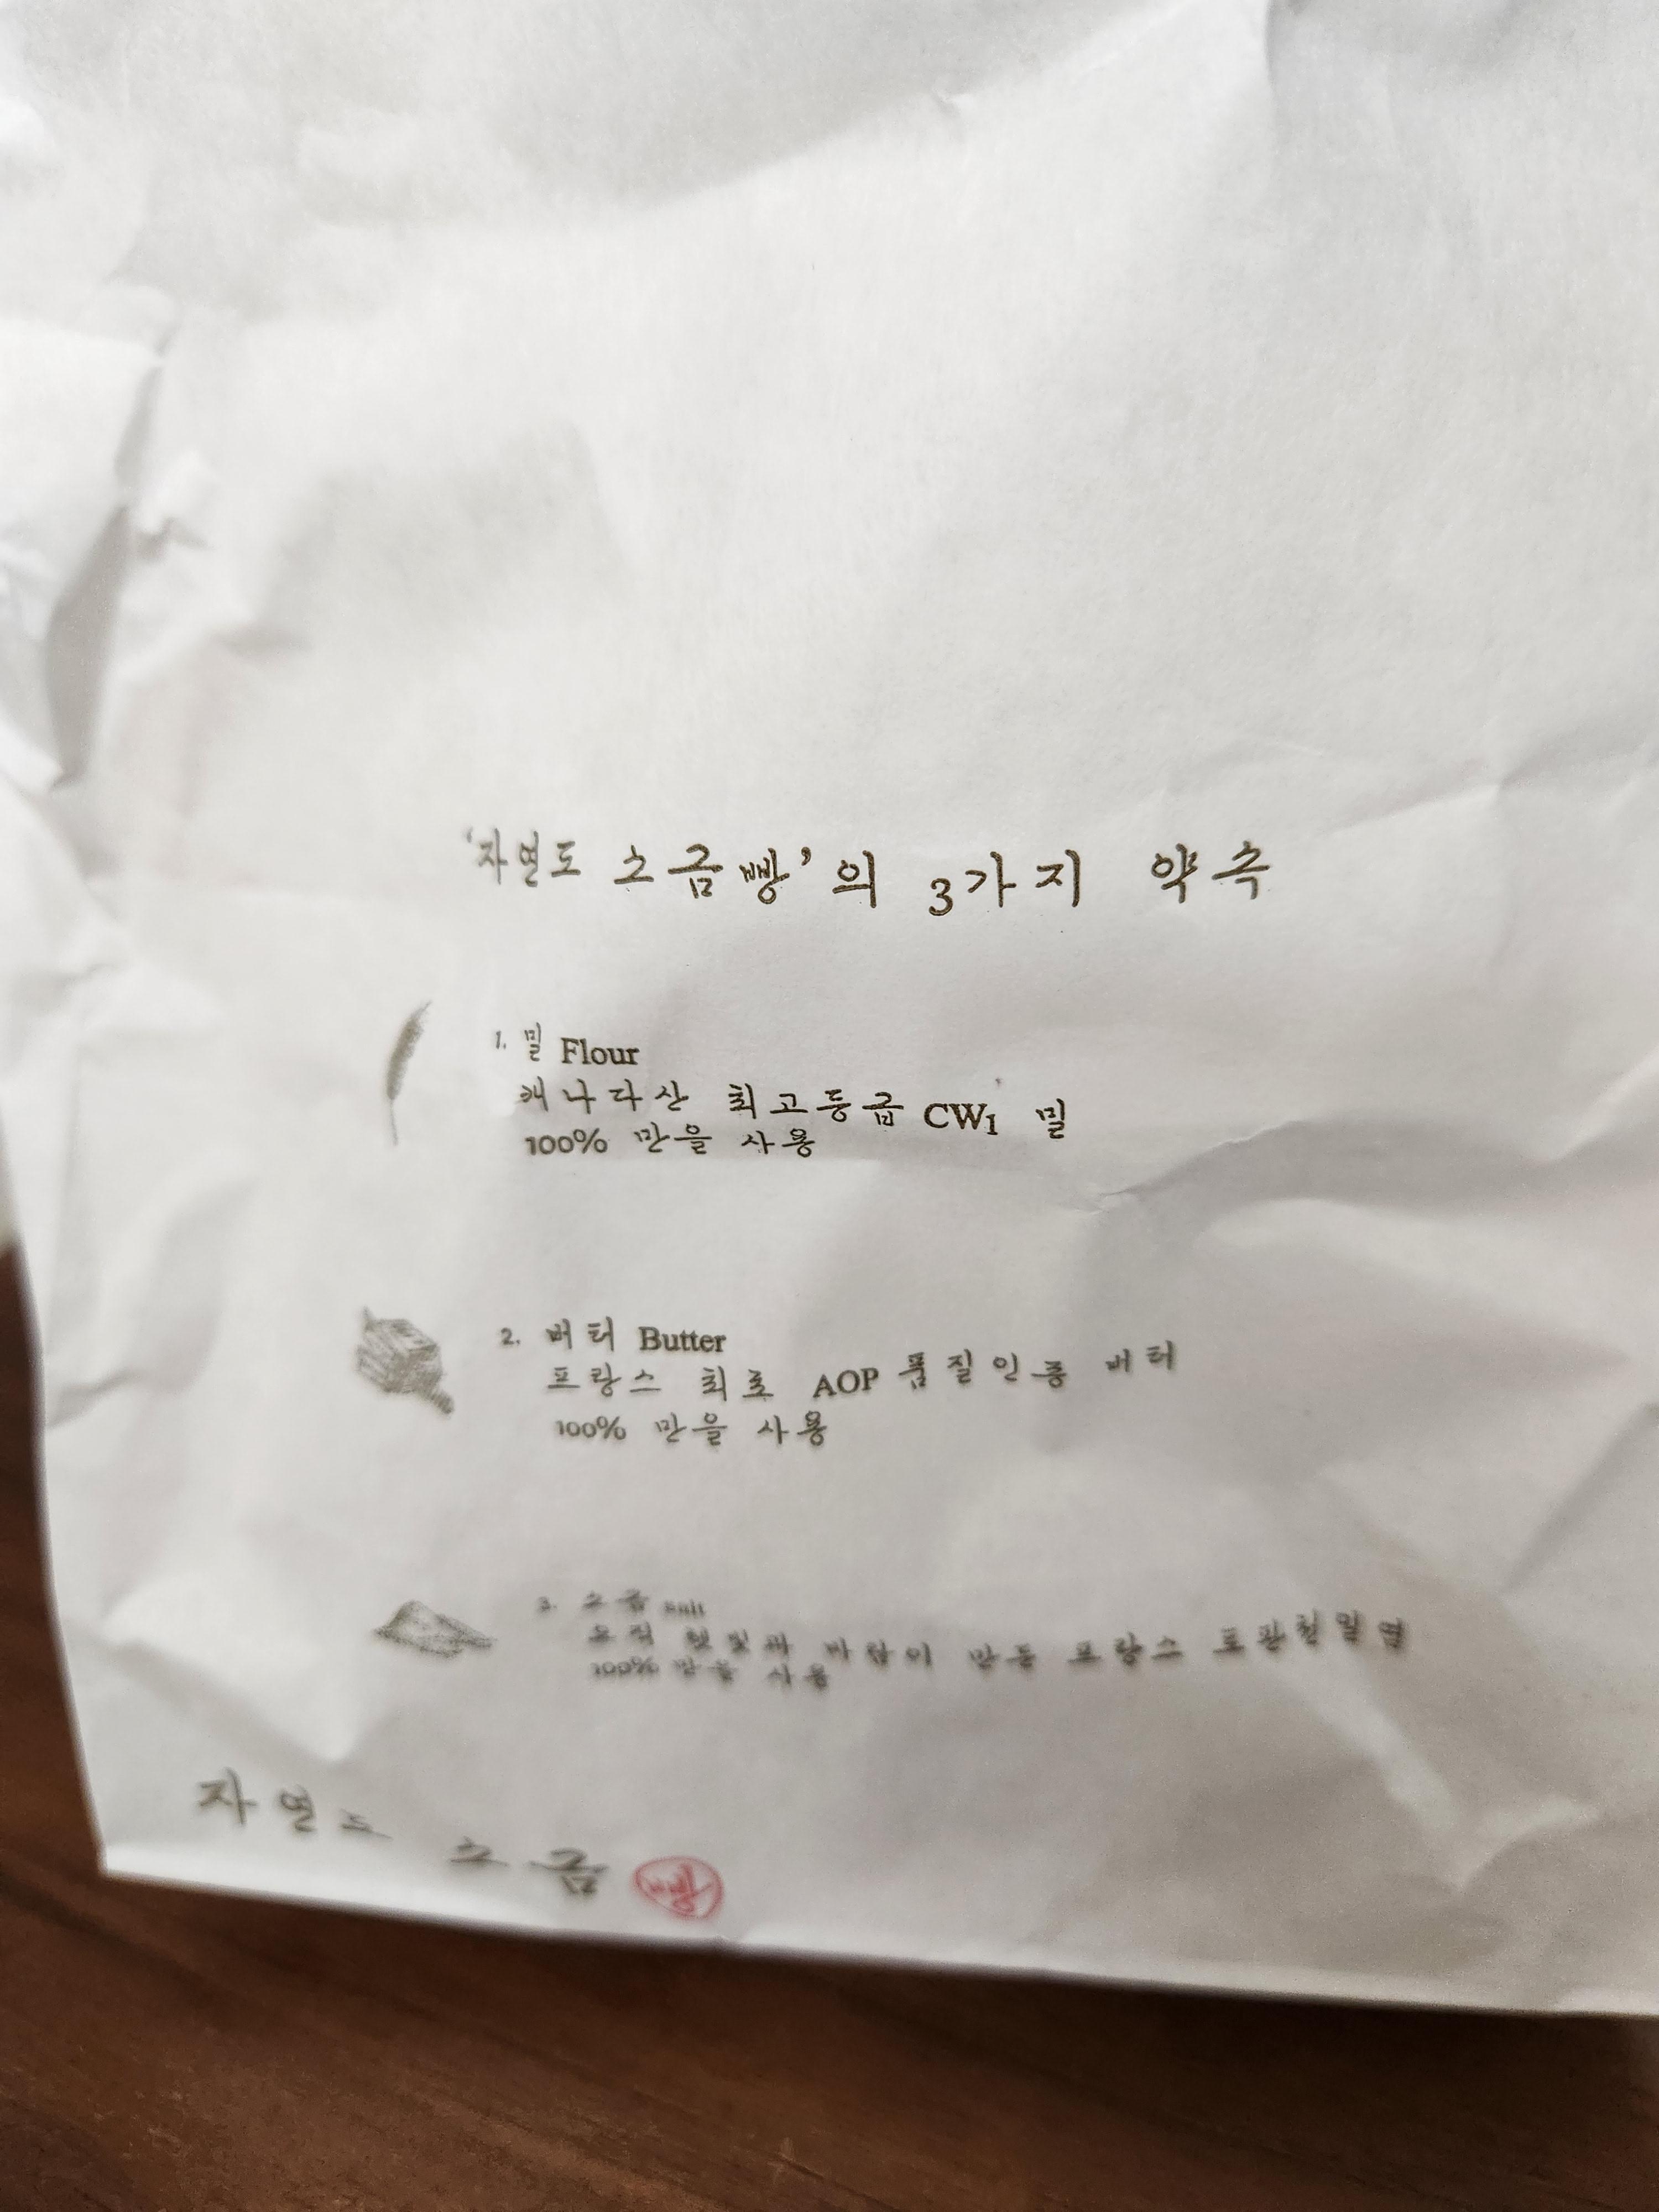 '자연도 소금빵'의 3가지 약속
1. 밀 Flour
캐나다산 최고등급 CW1 밀
100% 만을 사용
2. 버터 Butter
프랑스 최초 AOP 품질인증 버터
100% 만을 사용
3. 소금 Salt
오직 햇빛과 바람이 만든 프랑스 토판천일염
100% 만을 사용
자연도 소금빵